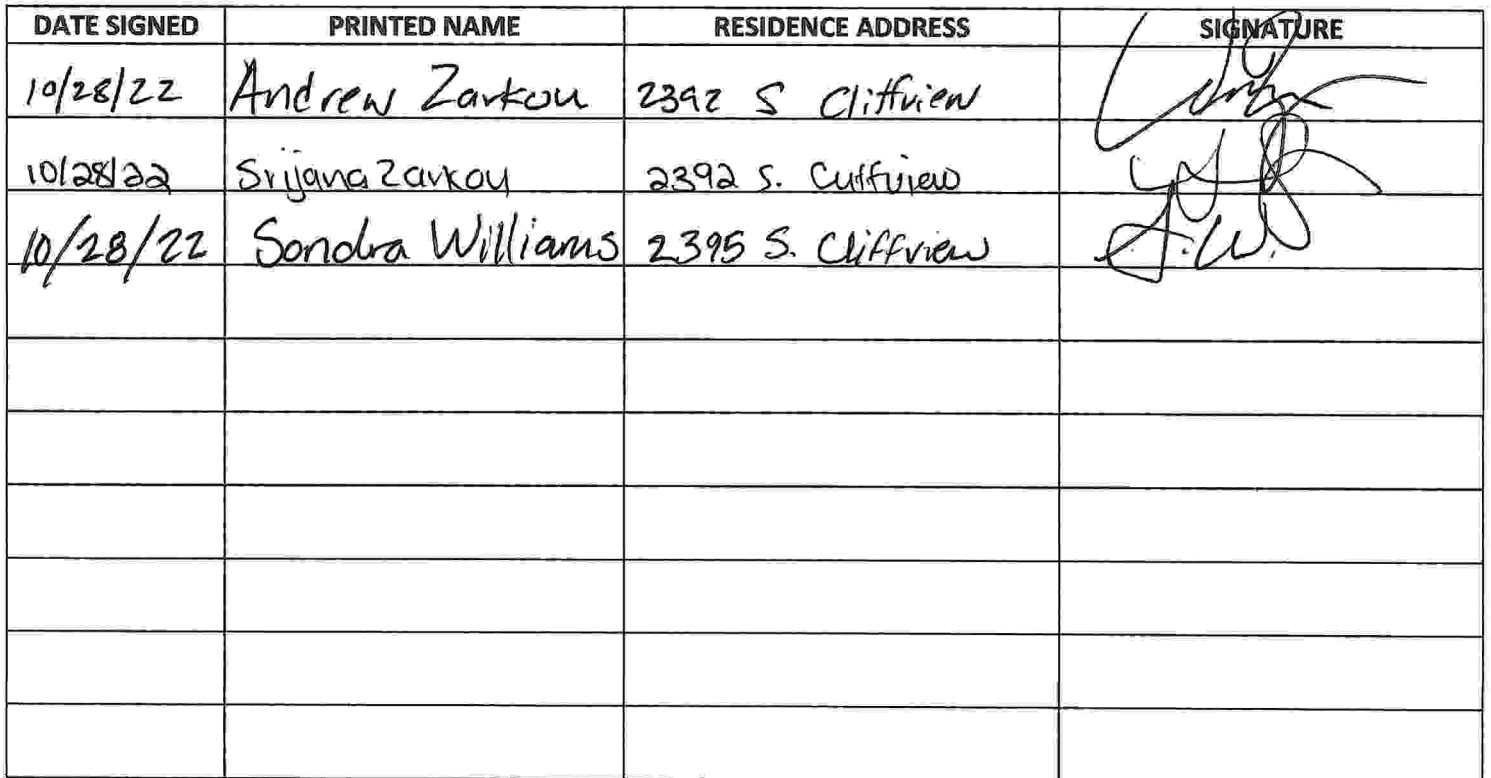 DATE SIGNED PRINTED NAME RESIDENCE ADDRESS SIGNATURE
10/28/22 Andrew Zarkou 2392 S Cliffview
10/28/22 Srijana Zarkou 2392 S. Cliffview
10/28/22 Sondra Williams 2395 S. Cliffview S.W.